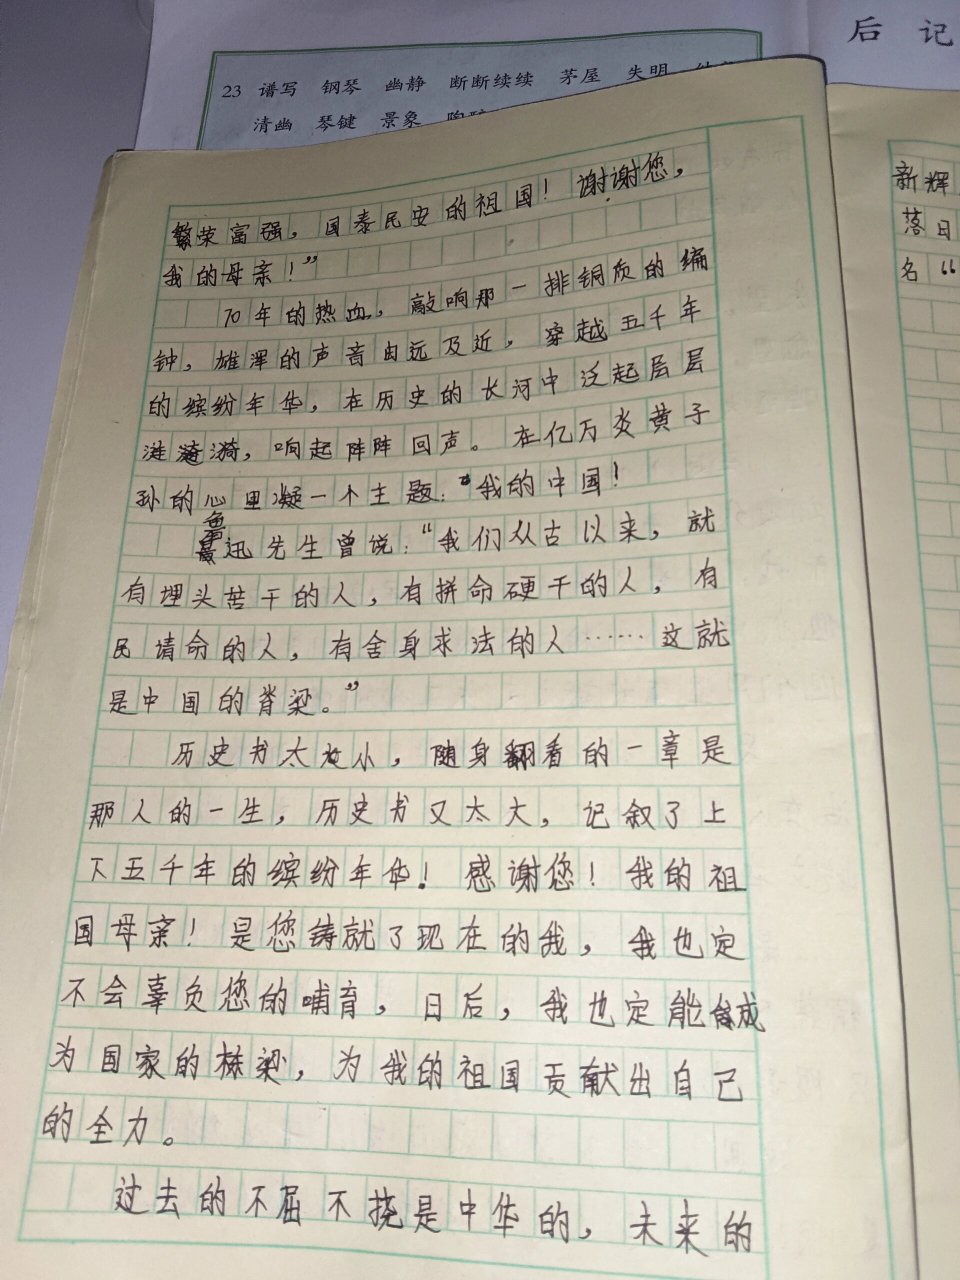 后记
23 谱写 钢琴 幽静 断断续续 茅屋 失明
清幽 琴键 景象
繁荣富强，国泰民安的祖国！谢谢您，
我的母亲！”
70年的热血，敲响那一排铜质的编
钟，雄浑的声音由远及近，穿越五千年
的缤纷年华，在历史的长河中泛起层层
涟漪，响起阵阵回声。在亿万炎黄子
孙的心里凝一个主题：“我的中国！
鲁迅先生曾说：“我们从古以来，就
有埋头苦干的人，有拼命硬干的人，有
民请命的人，有舍身求法的人……这就
是中国的脊梁。”
历史书太小，随身翻看的一章是
那人的一生，历史书又太大，记叙了上
下五千年的缤纷年华！感谢您！我的祖
国母亲！是您铸就了现在的我，我也定
不会辜负您的哺育，日后，我也定能成
为国家的栋梁，为我的祖国贡献出自己
的全力。
过去的不屈不挠是中华的，未来的
新辉
落日
名“